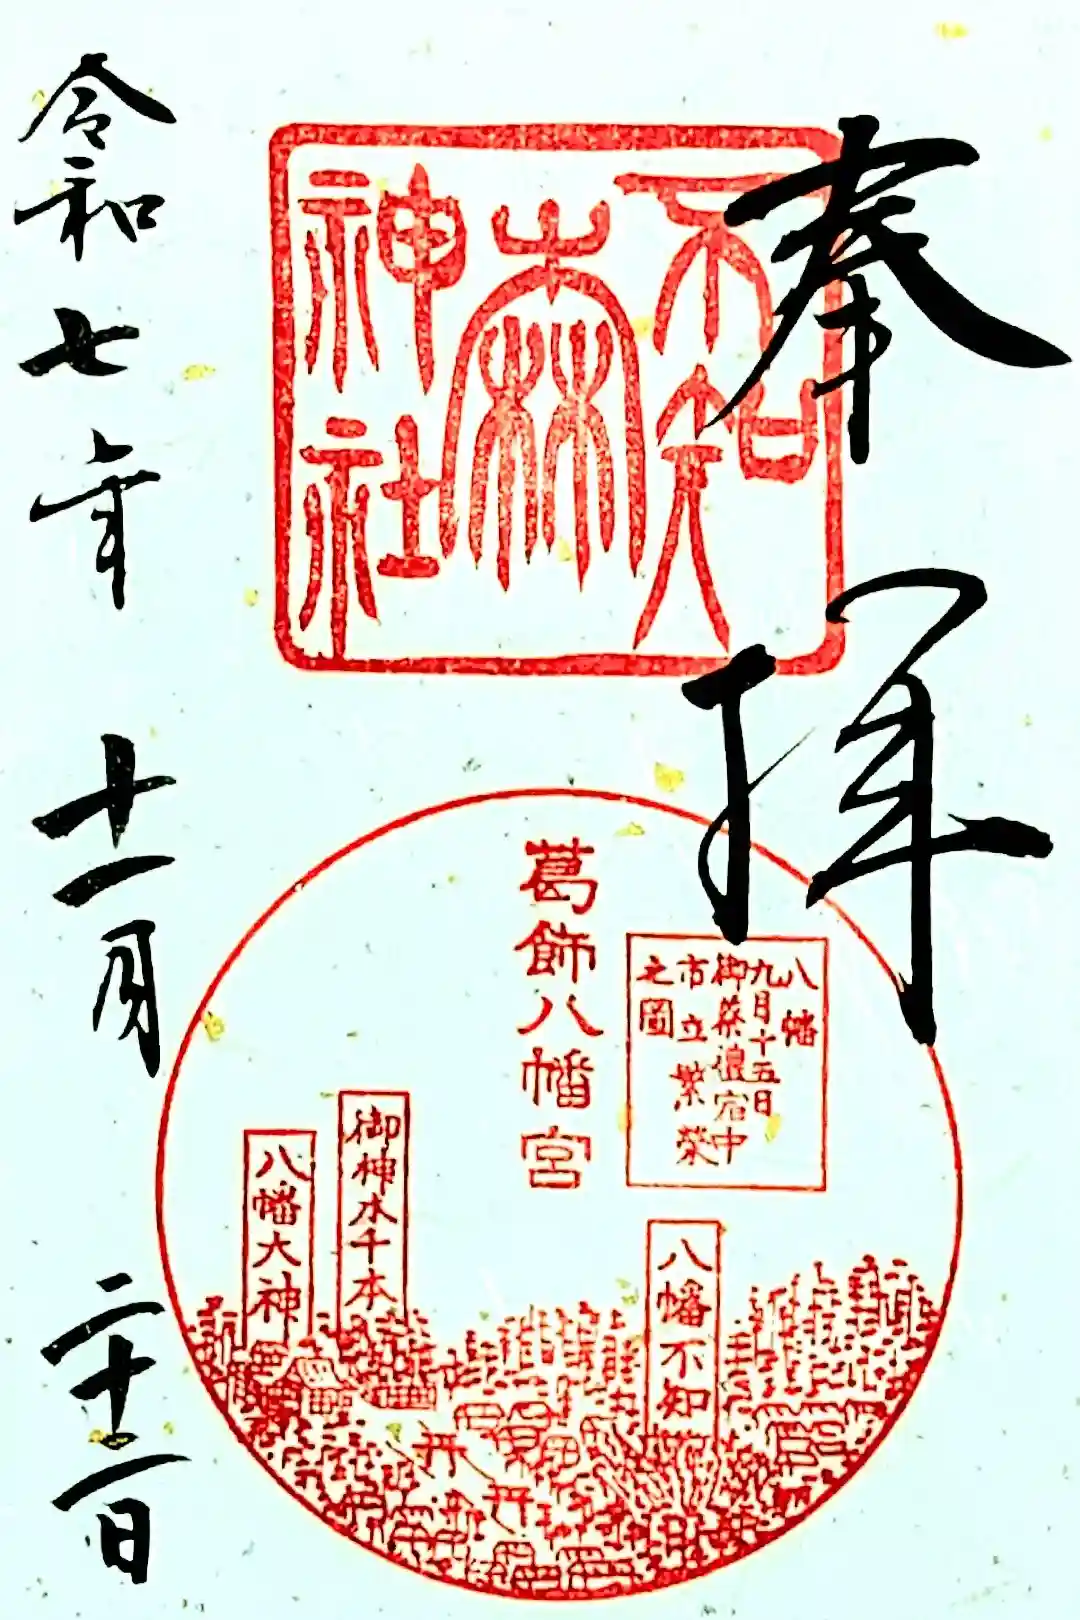 奉拝
不知
森
神社
葛飾八幡宮
八幡
九月十五日
御祭禮宿中
市立繁榮
之圖
八幡不知
御神木千本
八幡大神
令和七年十一月二十二日